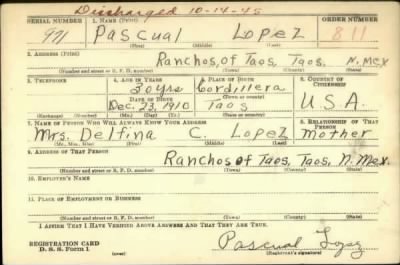 Discharged 10-14-45
SERIAL NUMBER 1. NAME (Print) ORDER NUMBER
971 Pascual Lopez 811
(First) (Middle) (Last)
2. ADDRESS (Print)
Ranchos, of Taos, Taos, N. Mex
(Number and street or R. F. D. number) (Town) (County) (State)
3. TELEPHONE 4. AGE IN YEARS 5. PLACE OF BIRTH 6. COUNTRY OF CITIZENSHIP
30 yrs Cordillera
DATE OF BIRTH (Town or county)
Dec. 23, 1910 Taos U.S.A.
(Exchange) (Number) (Mo.) (Day) (Yr.) (State or country)
7. NAME OF PERSON WHO WILL ALWAYS KNOW YOUR ADDRESS 8. RELATIONSHIP OF THAT PERSON
Mrs. Delfina C. Lopez Mother
(Mr., Mrs., Miss) (First) (Middle) (Last)
9. ADDRESS OF THAT PERSON
Ranchos, of Taos, Taos, N. Mex.
(Number and street or R. F. D. number) (Town) (County) (State)
10. EMPLOYER'S NAME
11. PLACE OF EMPLOYMENT OR BUSINESS
(Number and street or R. F. D. number) (Town) (County) (State)
I AFFIRM THAT I HAVE VERIFIED ABOVE ANSWERS AND THAT THEY ARE TRUE.
REGISTRATION CARD
D. S. S. Form 1 (over) Pascual Lopez
(Registrant's signature)